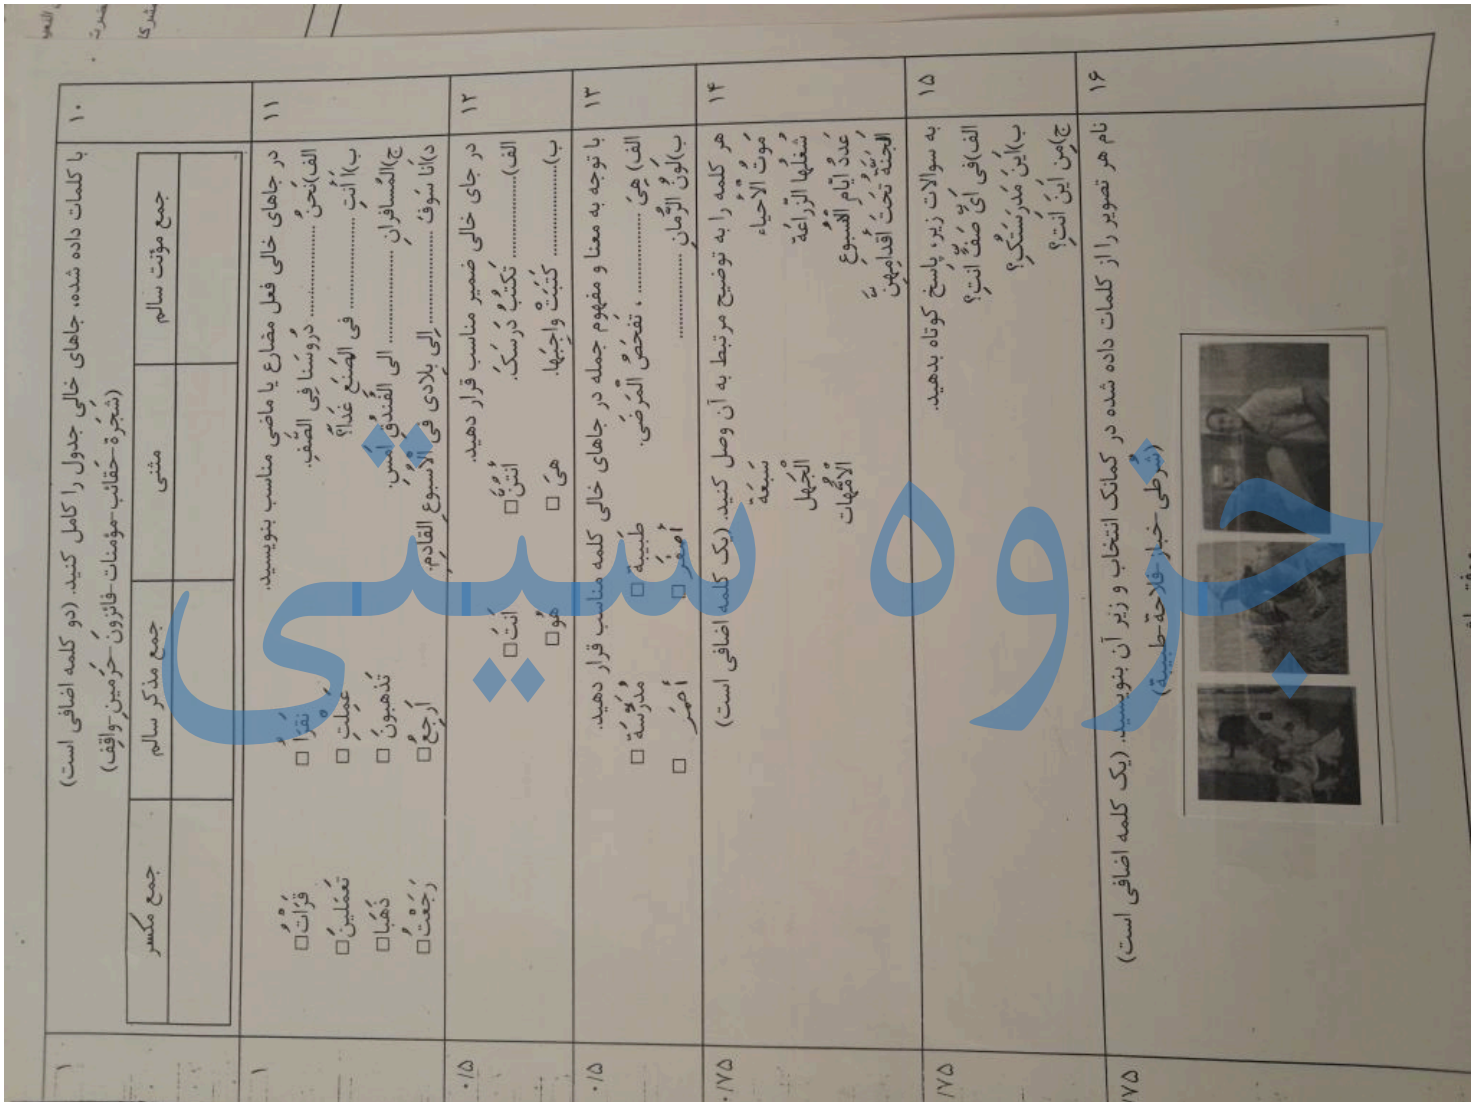 ۱۰
با کلمات داده شده، جاهای خالی جدول را کامل کنید. (دو کلمه اضافی است)
(شَجَرَة-حَقائب-مؤمنات-فائزونَ-حَرَمینِ-واقِف)
جمع مؤنث سالم
مثنی
جمع مذکر سالم
جمع مکسر
۱
۱۱
در جاهای خالی فعل مضارع یا ماضی مناسب بنویسید.
الف)نَحنُ .................. دُروسَنا فِی الصَّفِ.
□ نَقرَأُ
□ قَرَأتُ
ب)أ أنتِ .................. فی المَصنَعِ غَداً؟
□ عَمِلتِ
□ تَعمَلینَ
ج)المُسافرانِ .................. الی الفُندُقِ اَمس.
□ تَذهبونَ
□ ذَهَبَا
د)أنَا سَوفَ .................. اِلی بِلادی فی الاُسبُوعِ القادِمِ.
□ أرجِعُ
□ رَجَعْتُ
۱
۱۲
در جای خالی ضمیر مناسب قرار دهید.
الف).................. تَکتُبُ دَرسَکَ.
□ أنتُنَّ
□ أنتَ
ب).................. کَتَبَتْ واجِبَها.
□ هیَ
□ هُوَ
۰/۵
۱۳
با توجه به معنا و مفهوم جمله در جاهای خالی کلمه مناسب قرار دهید.
الف) هِیَ .................. ، تَفحَصُ الْمَرضَی.
□ طَبیبَة
□ مُدَرِّسَة
ب)لَونُ الرُّمانِ ..................
□ أصفَر
□ أحمَر
۰/۵
۱۴
هر کلمه را به توضیح مرتبط به آن وصل کنید. (یک کلمه اضافی است)
مَوتُ الْأحیاء
سَبعَة
شُغلُها الزِّراعَة
الْجَهل
عَدَدُ أیّامِ الاُسبُوعِ
الاُمَّهات
اَلجَنَّة تَحتَ أقدامِهِنَّ
۰/۷۵
۱۵
به سوالات زیر، پاسخ کوتاه بدهید.
الف)فی أیِّ صَفٍّ أنتِ؟
ب)أینَ مَدرَسَتُکِ؟
ج)مِن أینَ أنتِ؟
/۷۵
۱۶
نام هر تصویر را از کلمات داده شده در کمانک انتخاب و زیر آن بنویسید. (یک کلمه اضافی است)
(شُرطی-خباز-فلاحة-طبیبة)
۷۵
جزوه سیتی